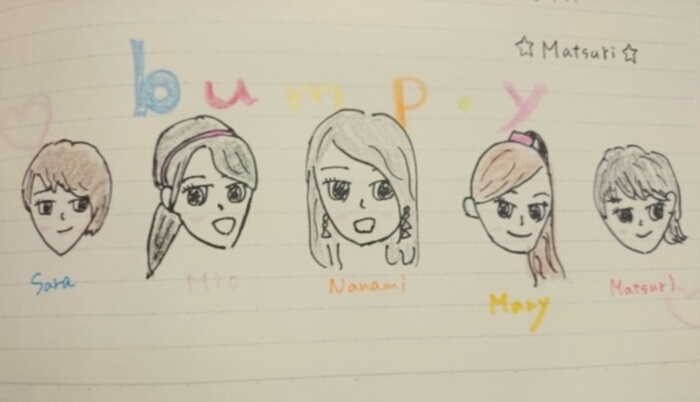 ☆ Matsuri ☆
bump.y
Sara
Mio
Nanami
Mary
Matsuri